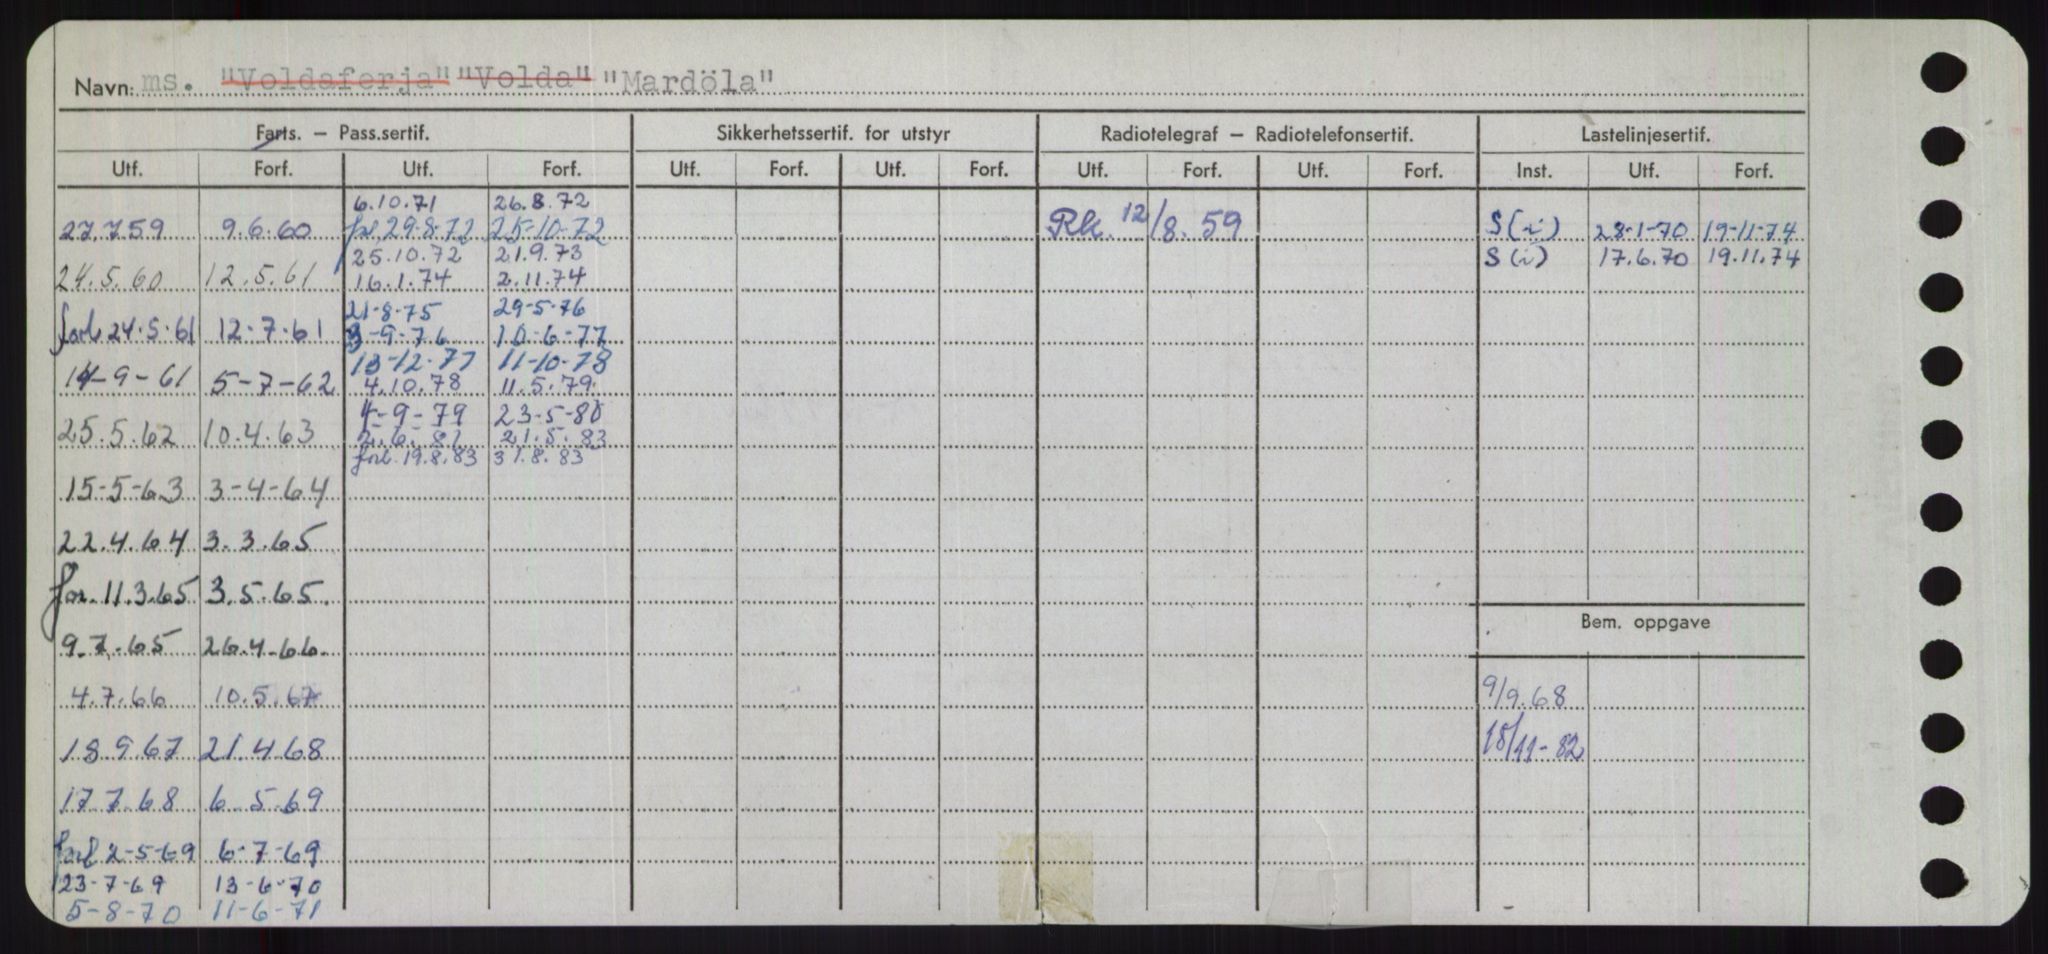 Navn: ms. "Voldaferja" "Volda" "Mardöla"
Farts. – Pass.sertif. Sikkerhetssertif. for utstyr Radiotelegraf – Radiotelefonsertif. Lastelinjesertif.
Utf. Forf. Utf. Forf. Utf. Forf. Utf. Forf. Utf. Forf. Utf. Forf. Inst. Utf. Forf.
6.10.71 26.8.72
27.7.59 9.6.60 forl 29.8.72 25-10-72 Rk. 12/8.59 S(i) 28-1-70 19-11-74
25.10.72 21.9.73 S(i) 17.6.70 19.11.74
24.5.60 12.5.61 16.1.74 2.11.74
21-8-75 29-5-76
forl 24.5.61 12.7.61 3-9-76 10-6-77
13-12-77 11-10-78
14-9-61 5-7-62 4.10.78 11.5.79
4-9-79 23-5-80
25.5.62 10.4.63 2.6.82 21.5.83
forl. 19.8.83 31.8.83
15-5-63 3-4-64
22.4.64 3.3.65
for. 11.3.65 3.5.65.
Bem. oppgave
9.7.65 26.4.66.
4.7.66 10.5.67 9/9.68
18.9.67 21.4.68 18/11-82
17.7.68 6.5.69
forl 2-5-69 6-7-69
23-7-69 13-6-70
5-8-70 11-6-71